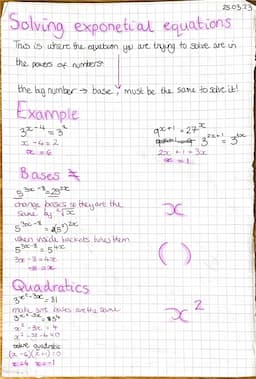 25.03.23
Solving exponetial equations
This is where the equation you are trying to solve are in
the powers of numbers.
the big number → base, must be the same to solve it!
Example
3^{x-4} = 3^2
x - 4 = 2
x = 6
9^{x+1} = 27^x
3^{2x+1} = 3^{3x}
2x + 1 = 3x
x = 1
Bases ≠
5^{3x-8} = 25^{2x}
change bases so they are the
same by
5^{3x-8} = (5^2)^{2x}
when inside brackets times them
5^{3x-8} = 5^{4x}
3x - 8 = 4x
-8 = x
x
( )
Quadratics
3^{x^2-3x} = 81
make sure bases are the same
3^{x^2-3x} = 3^4
x^2 - 3x = 4
x^2 - 3x - 4 = 0
solve quadratic
(x-4)(x+1) = 0
x=4 x=-1
x^2